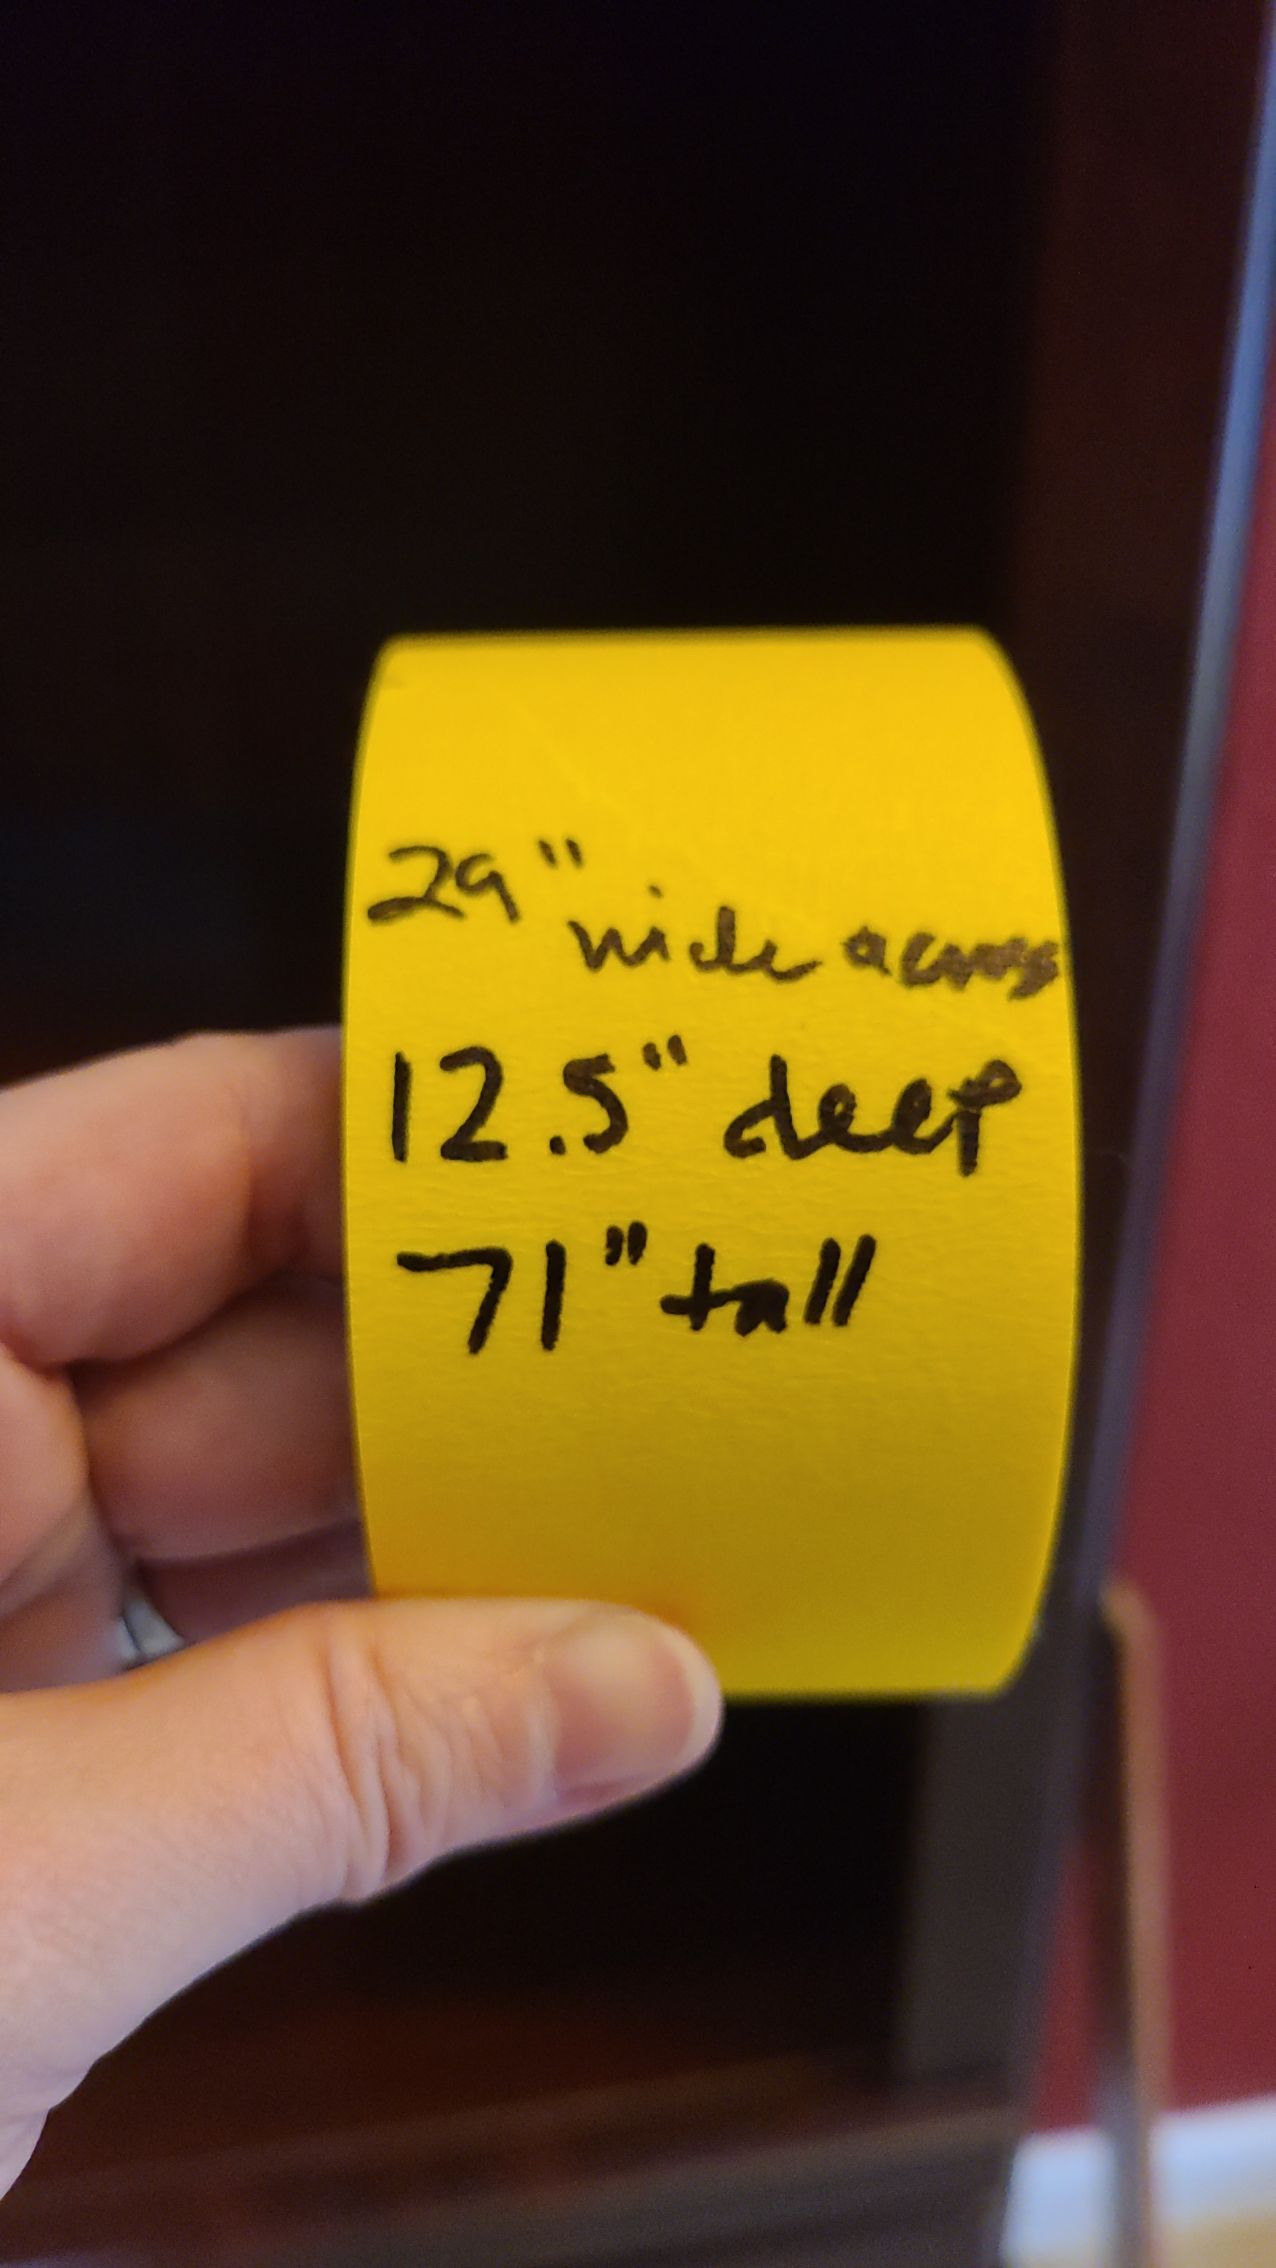 29" wide across
12.5" deep
71" tall